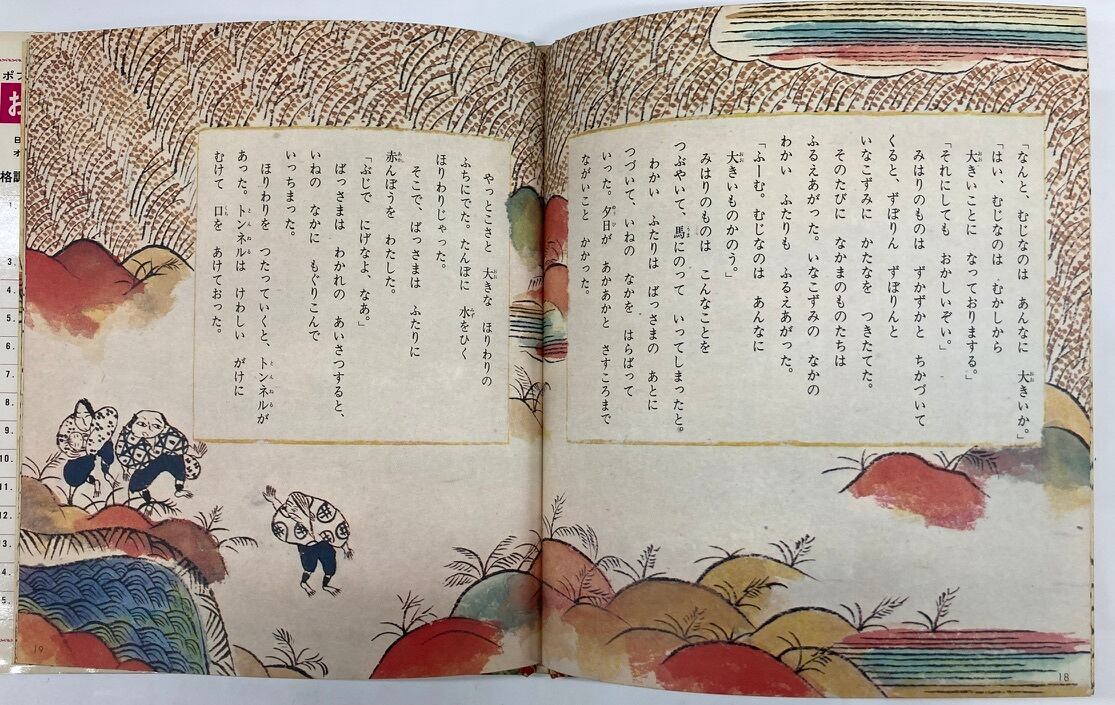 「なんと、むじなのは　あんなに　大きいか。」
「はい、むじなのは　むかしから
大きいことに　なっておりまする。」
「それにしても　おかしいぞい。」
みはりのものは　ずかずかと　ちかづいて
くると、ずぼりん　ずぼりんと
いなこずみに　かたなを　つきたてた。
そのたびに　なかまのものたちは
ふるえあがった。いなこずみの　なかの
わかい　ふたりも　ふるえあがった。
「ふーむ。むじなのは　あんなに
大きいものかのう。」
みはりのものは　こんなことを
つぶやいて、馬にのって　いってしまったと。
わかい　ふたりは　ばっさまの　あとに
つづいて、いねの　なかを　はらばって
いった。夕日が　あかあかと　さすころまで
ながいこと　かかった。
18
やっとこさと　大きな　ほりわりの
ふちにでた。たんぼに　水をひく
ほりわりじゃった。
そこで、ばっさまは　ふたりに
赤んぼうを　わたした。
「ぶじで　にげなよ、なあ。」
ばっさまは　わかれの　あいさつすると、
いねの　なかに　もぐりこんで
いっちまった。
ほりわりを　つたっていくと、トンネルが
あった。トンネルは　けわしい　がけに
むけて　口を　あけておった。
19
ポプ
お
格調
1.
3.
4.
5.
6.
7.
8.
9.
10.
11.
12.
13.